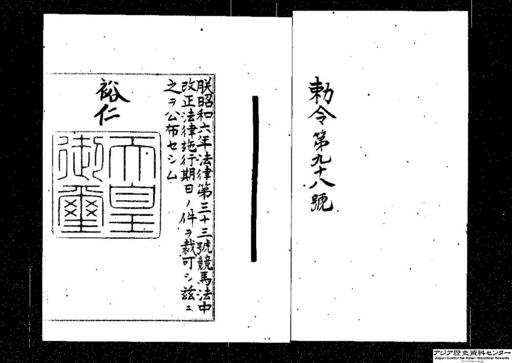 勅令第九十八號
朕昭和六年法律第三十三號競馬法中
改正法律施行期日ノ件ヲ裁可シ茲ニ
之ヲ公布セシム
裕仁
天皇
御璽
アジア歴史資料センター
Japan Center for Asian Historical Records